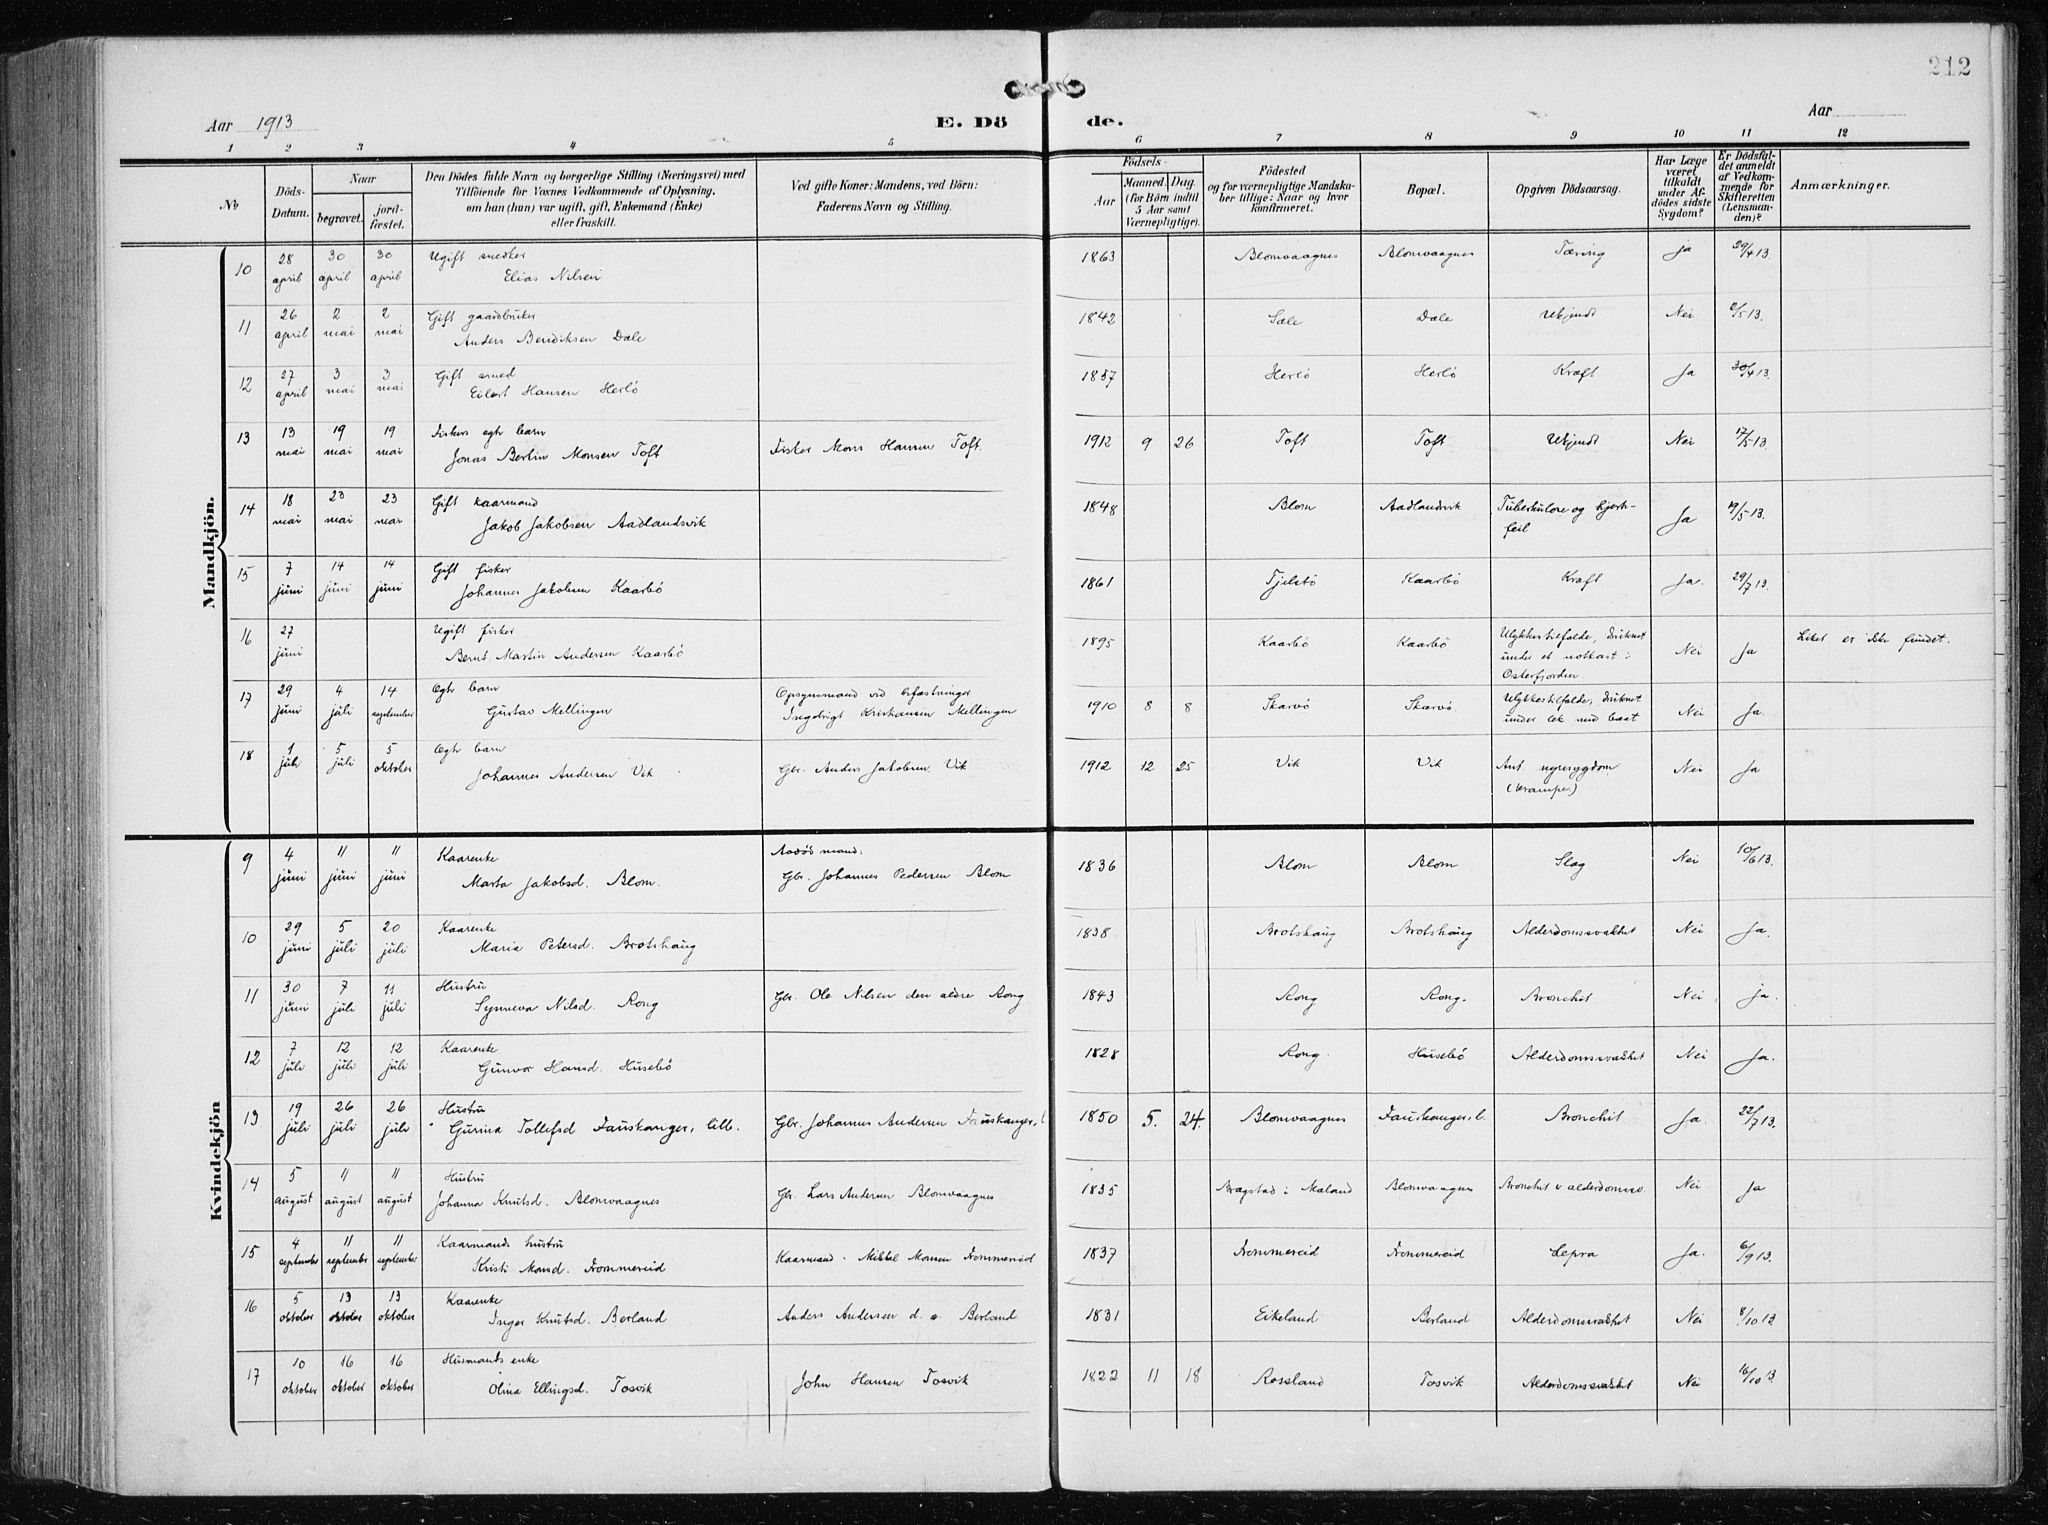 212
Aar 1913
E. Döde.
Aar
1 2 3 4 5 6 7 8 9 10 11 12
No
Döds-Datum.
Naar
begravet.
jord-fæstet.
Den Dödes fulde Navn og borgerlige Stilling (Næringsvei) med
Tilföiende for Voxnes Vedkommende af Oplysning,
om han (hun) var ugift, gift, Enkemand (Enke)
eller fraskilt.
Ved gifte Koner: Mandens, ved Börn:
Faderens Navn og Stilling.
Födsels-
Aar
Maaned. Dag.
(for Börn indtil
5 Aar samt
Værnepligtige).
Födested
og for værnepligtige Mandska-
ber tillige: Naar og hvor
konfirmeret.
Bopæl.
Opgiven Dödsaarsag.
Har Læge
været
tilkaldt
under Af-
dödes sidste
Sygdom?
Er Dödsfal-
det anmeldt
af Vedkom-
mende for
Skifteretten
(Lensman-
den)?
Anmærkninger.
Mandkjön.
10 28 april 30 april 30 april Ugift snedker Elias Nilsen 1863 Blomvaagnes Blomvaagnes Tæring Ja 29/4 13.
11 26 april 2 mai 2 mai Gift gaardbruker Anders Bendiksen Dale 1842 Sæle Dale Ukjendt Nei 2/5 13.
12 27 april 3 mai 3 mai Gift smed Eilert Hansen Herlö 1837 Herlö Herlö Kræft Ja 30/4 13.
13 13 mai 19 mai 19 mai Fiskers egte barn Jonas Bertin Monsen Toft Fisker Mons Hansen Toft. 1912 9 26 Toft Toft Ukjendt Nei 17/5 13.
14 18 mai 23 mai 23 mai Gift kaarmand Jakob Jakobsen Aadlandsvik 1848 Blom Aadlandsvik Tuberkulose og hjerte-feil Ja 19/5 13.
15 7 juni 14 juni 14 juni Gift fisker Johannes Jakobsen Kaarbö 1861 Tjelstö Kaarbö Kræft Ja. 29/7 13.
16 27 juni Ugift fisker Bernt Martin Andersen Kaarbö 1895 Kaarbö Kaarbö Ulykkestilfælde, druknet under et notkast i Osterfjorden Nei Ja Liket er ikke fundet.
17 29 juni 4 juli 14 september Egte barn Gustav Mellingen Opsynsmand ved befæstninger Ingebrigt Kristiansen Mellingen 1910 8 8 Skarvö Skarvö Ulykkestilfælde, druknet under lek med baat Nei Ja.
18 1 juli 5 juli 5 oktober Egte barn Johannes Andersen Vik Gbr. Anders Jakobsen Vik 1912 12 25 Vik Vik Ant. nyresygdom (krampe.) Nei Ja
Kvindekjön
9 4 juni 11 juni 11 juni Kaarenke Marta Jakobsd. Blom. Avdöd mand: Gbr. Johannes Pedersen Blom 1836 Blom Blom Slag Nei 10/6 13.
10 29 juni 5 juli 20 juli Kaarenke Maria Petersd. Brotshaug 1838 Brotshaug Brotshaug Alderdomssvakhet Nei Ja.
11 30 juni 7 juli 11 juli Hustru Synneva Nilsd. Rong Gbr. Ole Nilsen den ældre Rong 1843 Rong Rong. Bronchit Nei Ja.
12 7 juli 12 juli 12 juli Kaarenke Gunvor Hansd. Husebö 1828 Rong Husebö Alderdomssvakhet Nei Ja.
13 19 juli 26 juli 26 juli Hustru Gurina Tollefsd Fauskanger, lille. Gbr. Johannes Andersen Fauskanger, l. 1850 5. 24. Blomvaagnes Fauskanger, l. Bronchit Ja. 22/7 13.
14 5 august 11 august 11 august Hustru Johanna Knutsd. Blomvaagnes Gbr. Lars Andersen Blomvaagnes 1835 Bragstad i Maland Blomvaagnes Bronchit & alderdomssv. Nei Ja
15 4 september 11 september 11 september Kaarmands hustru Kristi Monsd. Frommereid Kaarmand Mikkel Monsen Frommereid 1837 Frommereid Frommereid Lepra Ja. 6/9 13.
16 5 oktober 13 oktober 13 oktober Kaarenke Inger Knutsd. Berland Anders Andersen d. e. Berland 1831 Eikeland Berland Alderdomssvakhet Nei 8/10 13.
17 10 oktober 16 oktober 16 oktober Husmands enke Olina Ellingsd. Tosvik John Hansen Tosvik 1822 11 18 Rossland Tosvik Alderdomssvakhet Nei 16/10 13.